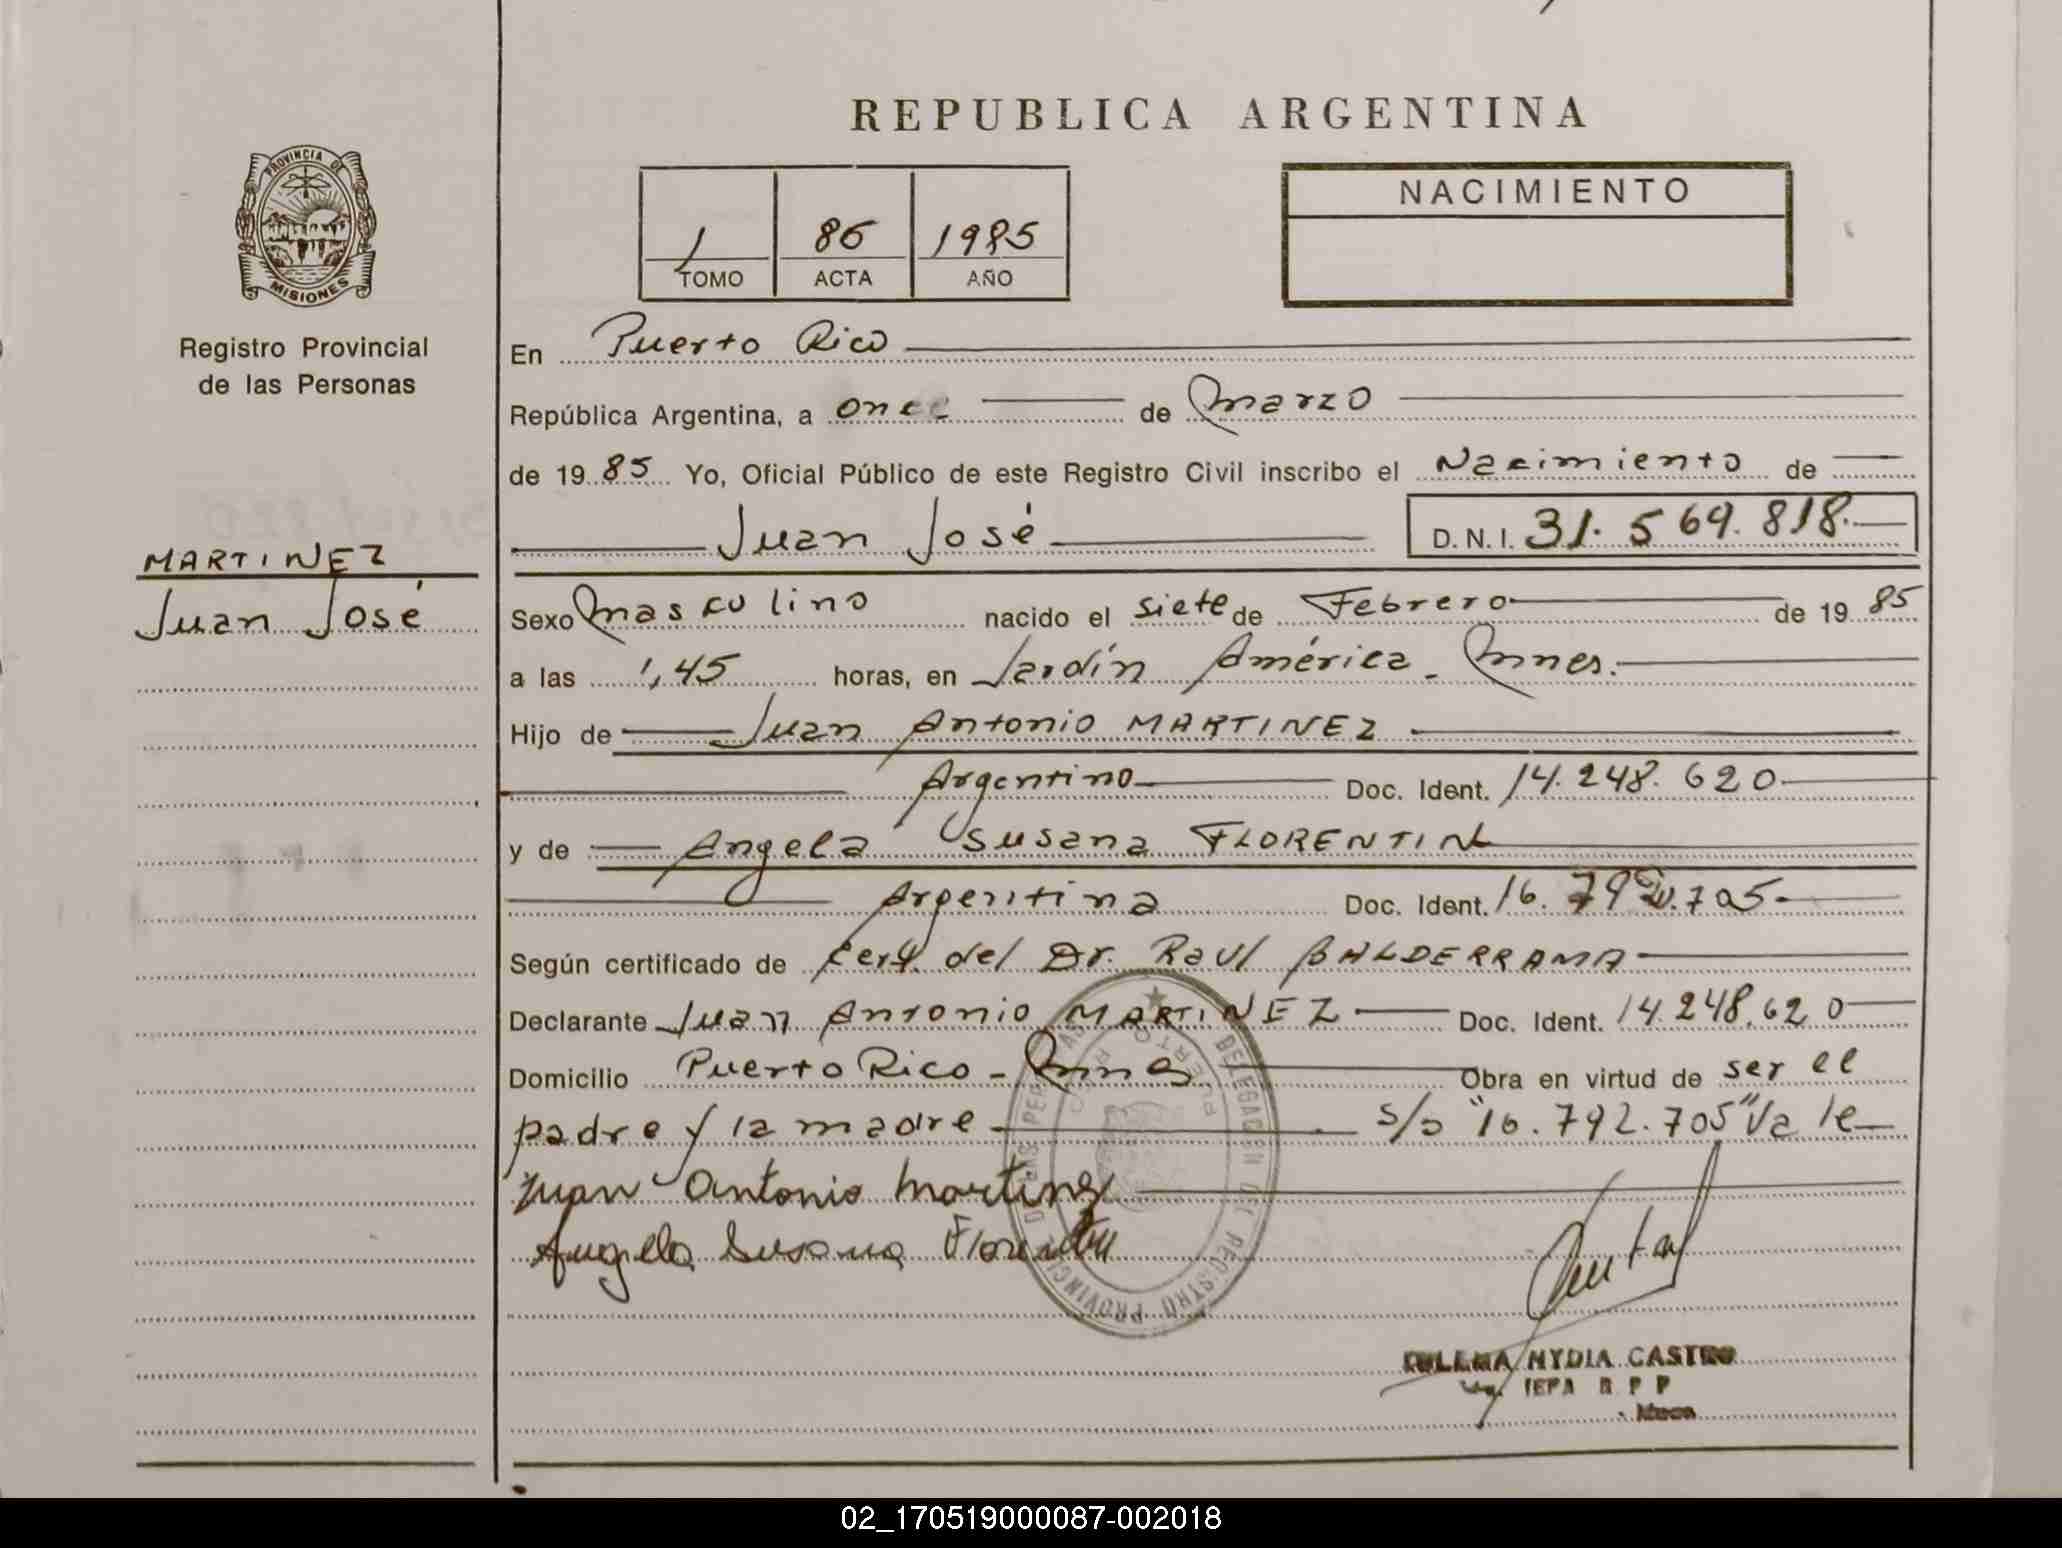 REPUBLICA ARGENTINA
PROVINCIA DE
MISIONES
Registro Provincial
de las Personas
MARTINEZ
Juan José
1 86 1985
TOMO ACTA AÑO
NACIMIENTO
En Puerto Rico
República Argentina, a once de Marzo
de 19 85 Yo, Oficial Público de este Registro Civil inscribo el Nacimiento de
Juan José D.N.I. 31.569.818.
Sexo Masculino nacido el siete de Febrero de 19 85
a las 1,45 horas, en Jardín América - Mnes.
Hijo de Juan Antonio MARTINEZ
Argentino Doc. Ident. 14.248.620
y de Angela Susana FLORENTIN
Argentina Doc. Ident. 16.792.705-
Según certificado de Cert. del Dr. Raul BALDERRAMA
Declarante Juan Antonio MARTINEZ Doc. Ident. 14.248.620
Domicilio Puerto Rico - Mnes Obra en virtud de ser el
padre y la madre s/b "16.792.705" Vale
Juan Antonio Martinez
Angela Susana Florentin
DELEGACION DEL REGISTRO PROVINCIAL DE LAS PERSONAS
PUERTO RICO
NYDIA CASTRO
02_170519000087-002018